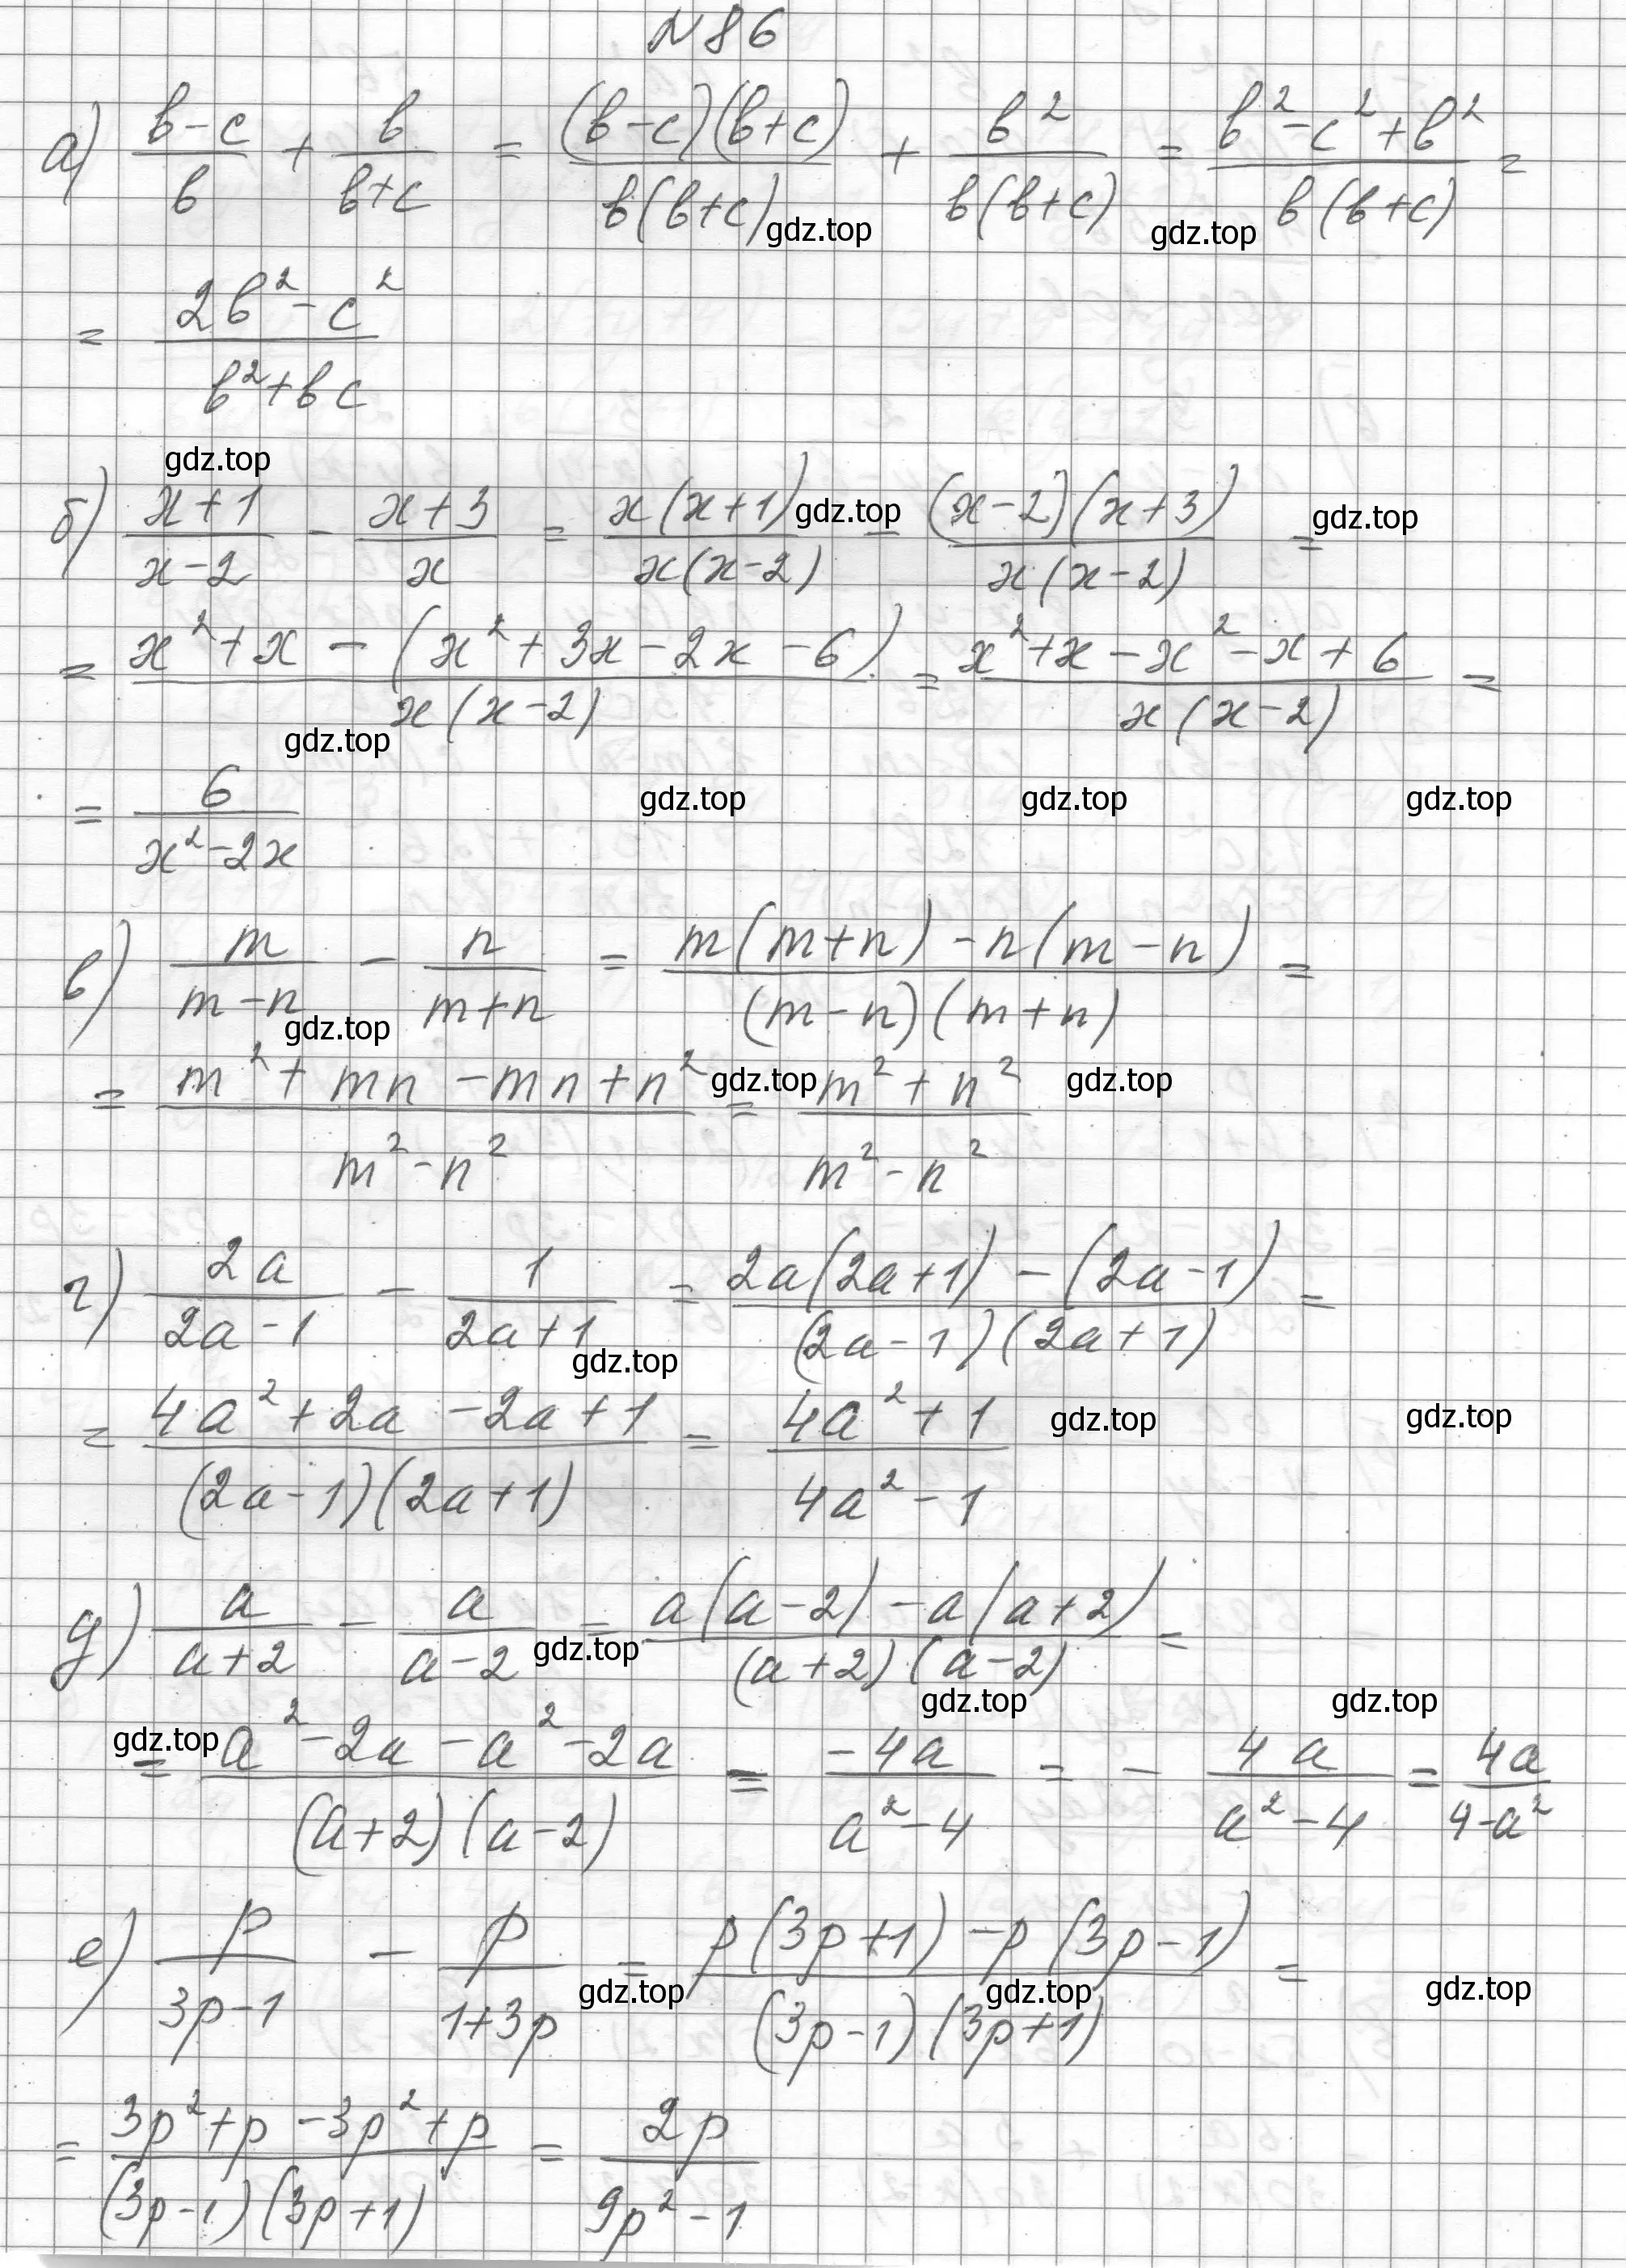 N86
а) (b-c)/b + b/(b+c) = (b-c)(b+c)/(b(b+c)) + b²/(b(b+c)) = (b²-c²+b²)/(b(b+c)) =
gdz.top gdz.top
= (2b²-c²)/(b²+bc)
gdz.top
б) (x+1)/(x-2) - (x+3)/x = x(x+1)/(x(x-2)) - (x-2)(x+3)/(x(x-2)) =
gdz.top gdz.top
= (x²+x-(x²+3x-2x-6))/(x(x-2)) = (x²+x-x²-x+6)/(x(x-2)) =
gdz.top
= 6/(x²-2x)
gdz.top gdz.top gdz.top
в) m/(m-n) - n/(m+n) = (m(m+n)-n(m-n))/((m-n)(m+n)) =
gdz.top
= (m²+mn-mn+n²)/(m²-n²) = (m²+n²)/(m²-n²)
gdz.top gdz.top
г) 2a/(2a-1) - 1/(2a+1) = (2a(2a+1)-(2a-1))/((2a-1)(2a+1)) =
gdz.top
= (4a²+2a-2a+1)/((2a-1)(2a+1)) = (4a²+1)/(4a²-1)
gdz.top gdz.top
д) a/(a+2) - a/(a-2) = (a(a-2)-a(a+2))/((a+2)(a-2)) =
gdz.top
gdz.top gdz.top
gdz.top
= (a²-2a-a²-2a)/((a+2)(a-2)) = -4a/(a²-4) = - 4a/(a²-4) = 4a/(4-a²)
е) p/(3p-1) - p/(1+3p) = (p(3p+1)-p(3p-1))/((3p-1)(3p+1)) =
gdz.top gdz.top gdz.top
= (3p²+p-3p²+p)/((3p-1)(3p+1)) = 2p/(9p²-1)